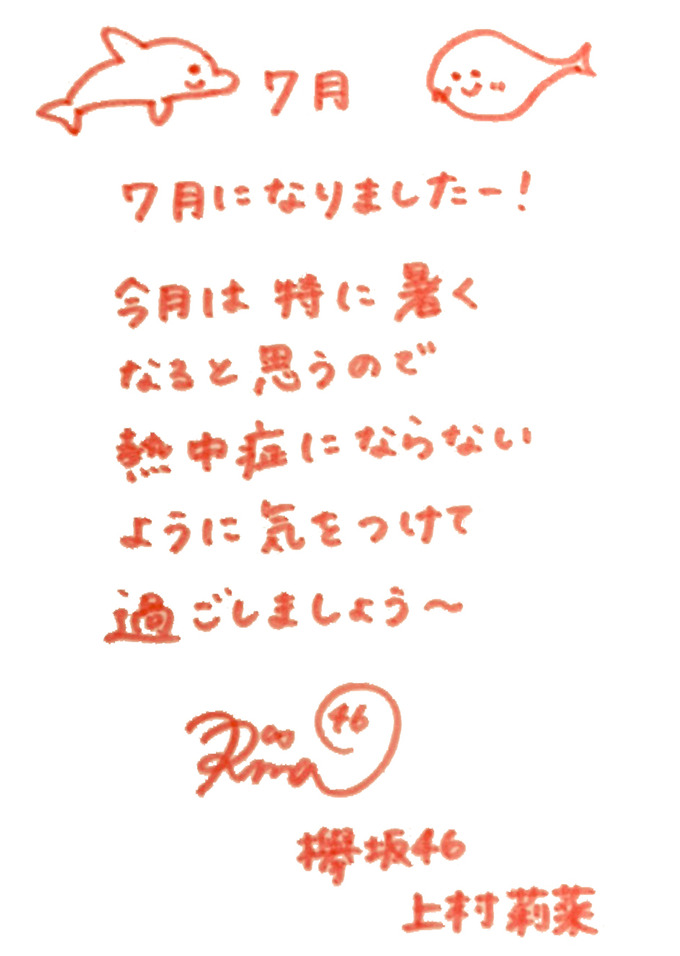 7月
7月になりましたー!
今月は特に暑く
なると思うので
熱中症にならない
ように気をつけて
過ごしましょう〜
Rina
46
欅坂46
上村莉菜